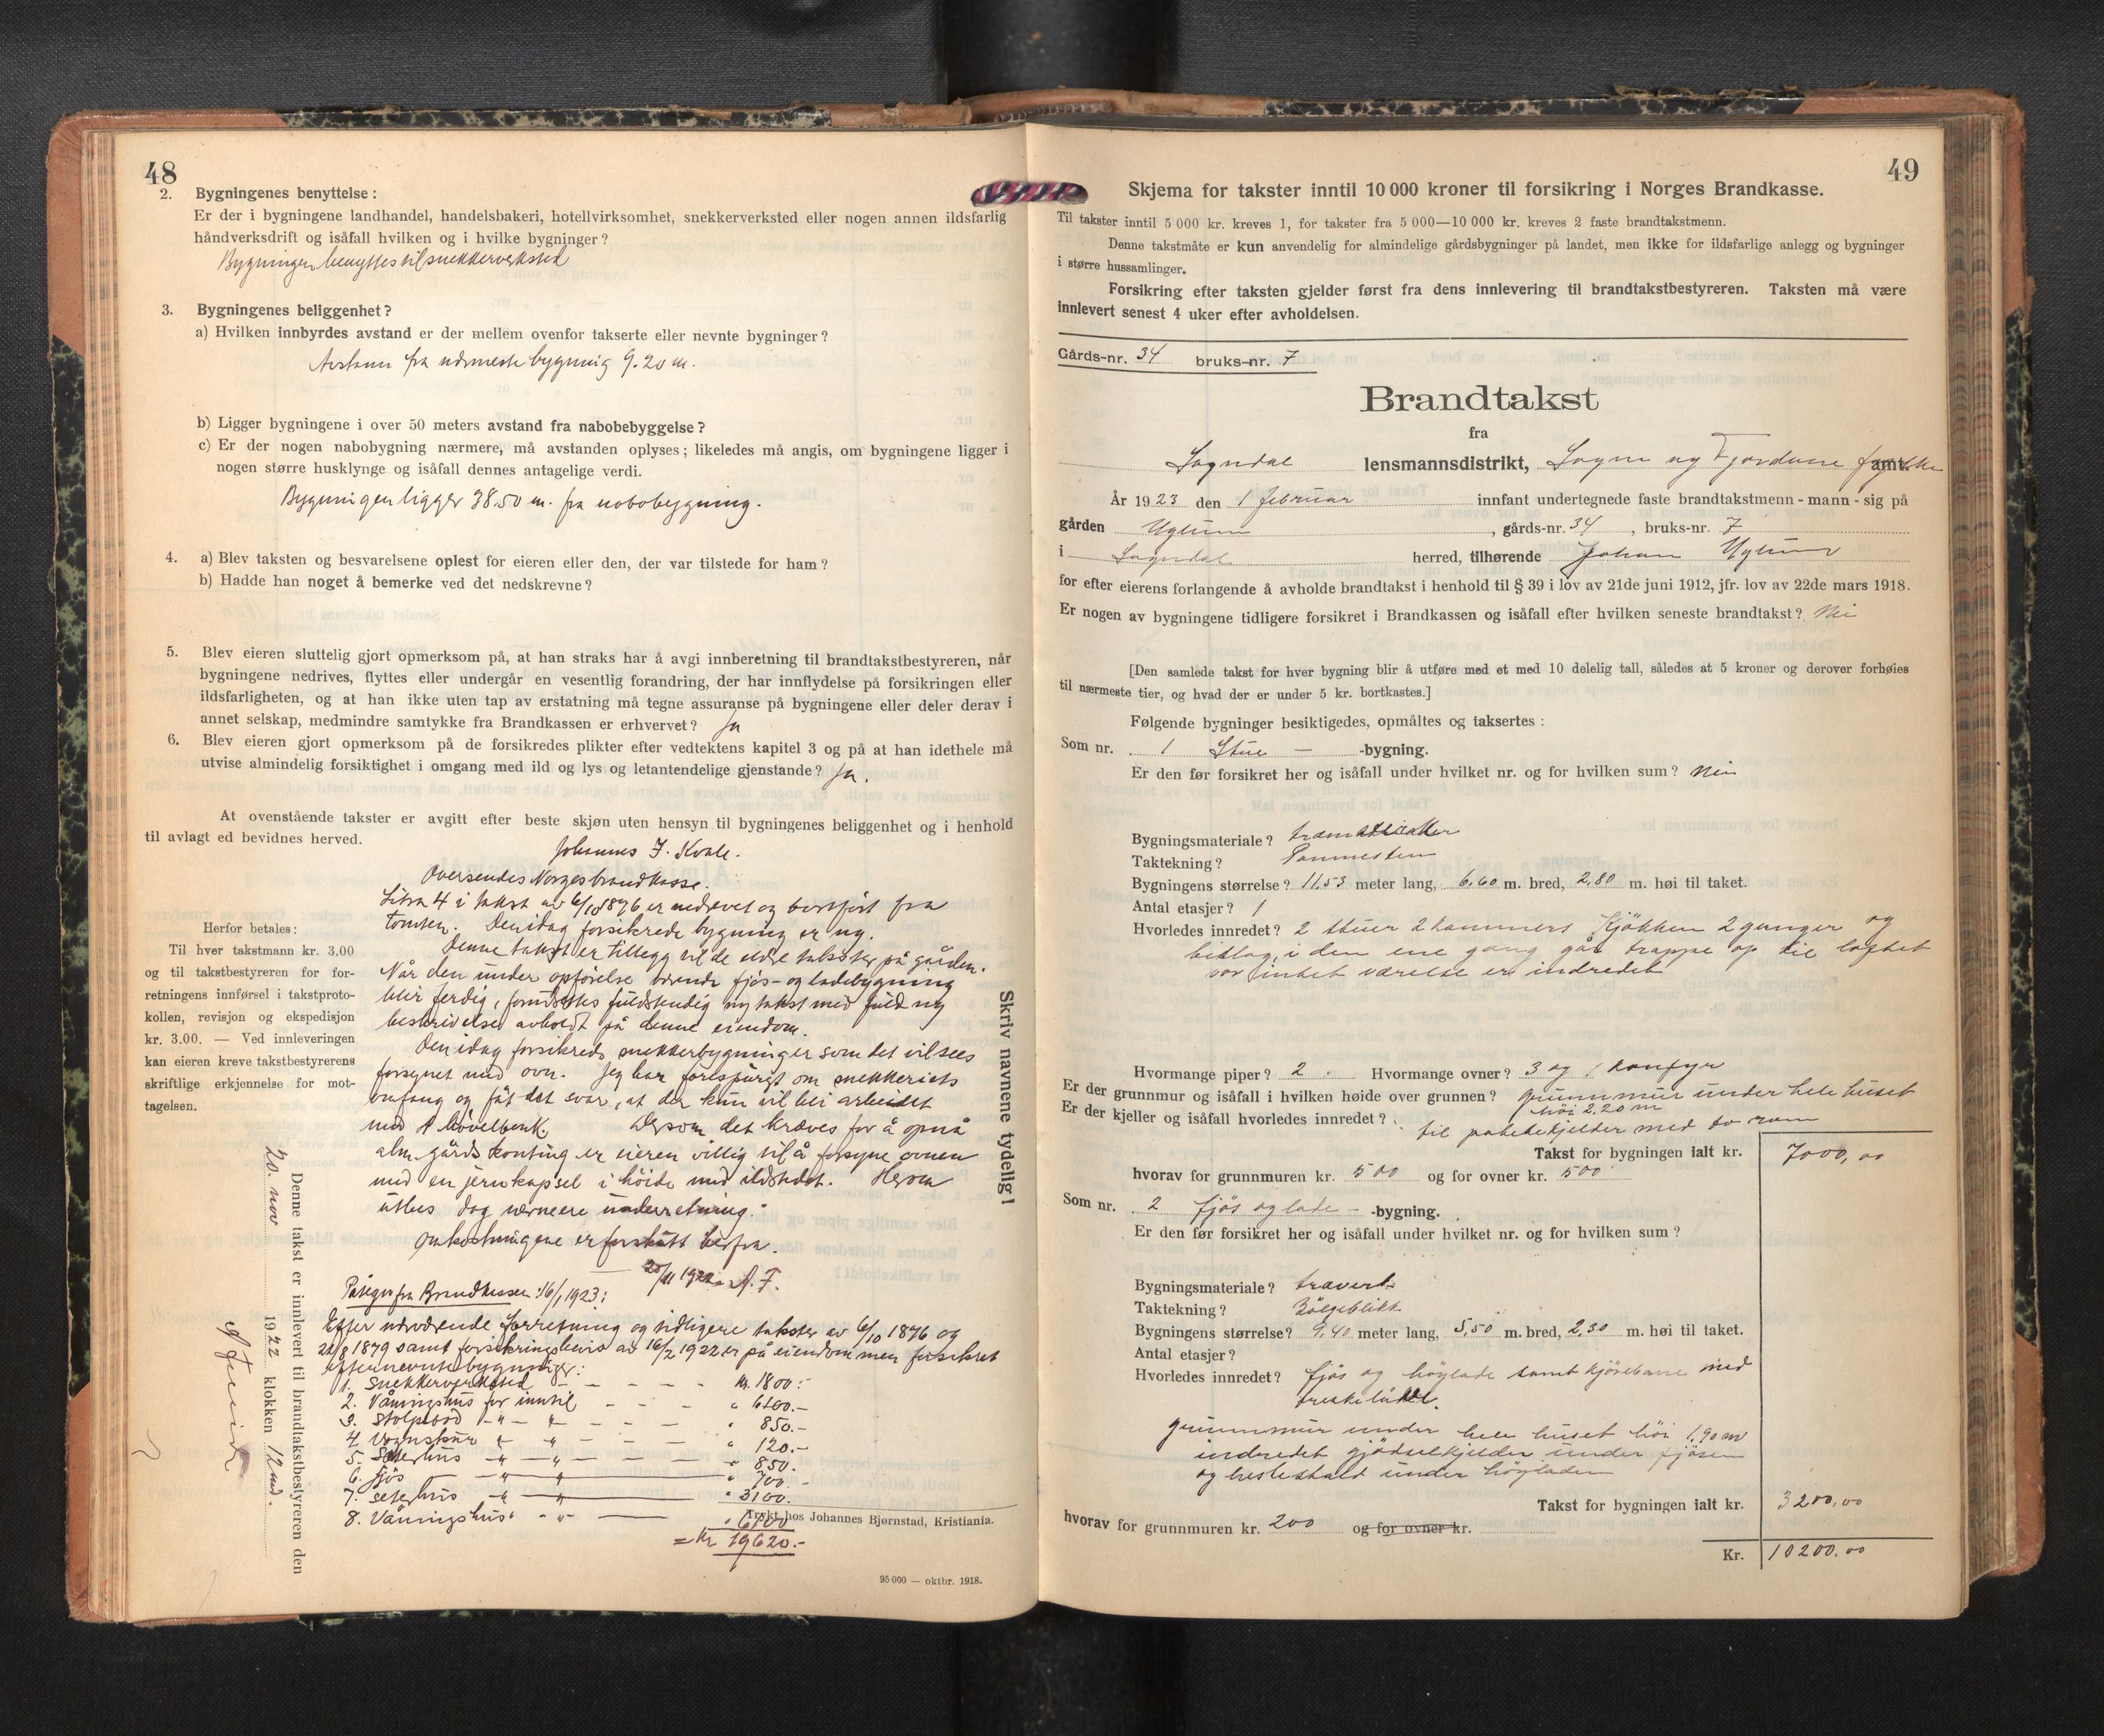 48
2. Bygningenes benyttelse:
Er der i bygningene landhandel, handelsbakeri, hotellvirksomhet, snekkerverksted eller nogen annen ildsfarlig
håndverksdrift og isåfall hvilken og i hvilke bygninger?
Bygningen benyttes til snekkerverksted
3. Bygningenes beliggenhet?
a) Hvilken innbyrdes avstand er der mellem ovenfor takserte eller nevnte bygninger?
Avstann fra nærmeste bygning 9.20 m.
b) Ligger bygningene i over 50 meters avstand fra nabobebyggelse?
c) Er der nogen nabobygning nærmere, må avstanden oplyses; likeledes må angis, om bygningene ligger i
nogen større husklynge og isåfall dennes antagelige verdi.
Bygningen ligger 38.50 m. fra nabobygning.
4. a) Blev taksten og besvarelsene oplest for eieren eller den, der var tilstede for ham?
b) Hadde han noget å bemerke ved det nedskrevne?
5. Blev eieren sluttelig gjort opmerksom på, at han straks har å avgi innberetning til brandtakstbestyreren, når
bygningene nedrives, flyttes eller undergår en vesentlig forandring, der har innflydelse på forsikringen eller
ildsfarligheten, og at han ikke uten tap av erstatning må tegne assuranse på bygningene eller deler derav i
annet selskap, medmindre samtykke fra Brandkassen er erhvervet? Ja
6. Blev eieren gjort opmerksom på de forsikredes plikter efter vedtektens kapitel 3 og på at han idethele må
utvise almindelig forsiktighet i omgang med ild og lys og letantendelige gjenstande? Ja.
At ovenstående takster er avgitt efter beste skjøn uten hensyn til bygningenes beliggenhet og i henhold
til avlagt ed bevidnes herved.
Johannes J. Kvale.
Oversendes Norges brandkasse.
Litra 4 i takst av 6/10 1876 er nedrevet og bortført fra
tomten. Den idag forsikrede bygning er ny.
Denne takst er tillegg til de eldre takster på gården.
Når den under opførelse værende fjøs- og ladebygning
blir ferdig, forutsettes fuldstendig ny takst med fuld ny
beskrivelse avholdt på denne eiendom.
Den idag forsikrede snekkerbygning er som det vil sees
forsynet med ovn. Jeg har forespurgt om snekkeriets
omfang og fåt det svar, at der kun vil bli arbeidet
med 1 høvelbenk. Dersom det kræves for å opnå
alm. gårdskonting er eieren villig til å forsyne ovnen
med en jernkapsel i høide med ildstedet. Herom
utbes dog nærmere underretning.
Omkostningene er forskutt herfra.
20/11 1922 A. F.
Herfor betales:
Til hver takstmann kr. 3.00
og til takstbestyreren for for-
retningens innførsel i takstproto-
kollen, revisjon og ekspedisjon
kr. 3.00. — Ved innleveringen
kan eieren kreve takstbestyrerens
skriftlige erkjennelse for mot-
tagelsen.
Skriv navnene tydelig!
Denne takst er innlevert til brandtakstbestyreren den
20. nov 1922 klokken 12 md.
Påtegn fra Brandkassen 16/1 1923:
Efter nærværende forretning og tidligere takster av 6/10 1876 og
21/8 1879 samt forsikringsbevis av 16/2 1922 er på eiendommen forsikret
efternevnte bygninger:
1. Snekkerverksted - - - - kr. 1800:-
2. Våningshus for inntil - - - " 6100.-
3. Stolpebod -"- " - - - " 850.-
4. Vognskur " " - - - " 120.-
5. Seterhus -"- " - - - " 850.
6. Fjøs -"- " " 700.-
7. Seterhus -"- " " 3100.
8. Våningshus -"- " 6100
= Kr 19620.-
Trykt hos Johannes Bjørnstad, Kristiania.
95 000 — oktbr. 1918.
49
Skjema for takster inntil 10 000 kroner til forsikring i Norges Brandkasse.
Til takster inntil 5 000 kr. kreves 1, for takster fra 5 000—10 000 kr. kreves 2 faste brandtakstmenn.
Denne takstmåte er kun anvendelig for almindelige gårdsbygninger på landet, men ikke for ildsfarlige anlegg og bygninger
i større hussamlinger.
Forsikring efter taksten gjelder først fra dens innlevering til brandtakstbestyreren. Taksten må være
innlevert senest 4 uker efter avholdelsen.
Gårds-nr. 34 bruks-nr. 7
Brandtakst
fra
Sogndal lensmannsdistrikt, Sogn og Fjordane fylke amt.
År 1923 den 1 februar innfant undertegnede faste brandtakstmenn - mann - sig på
gården Uglum, gårds-nr. 34, bruks-nr. 7
i Sogndal herred, tilhørende Johan Uglum
for efter eierens forlangende å avholde brandtakst i henhold til § 39 i lov av 21de juni 1912, jfr. lov av 22de mars 1918.
Er nogen av bygningene tidligere forsikret i Brandkassen og isåfall efter hvilken seneste brandtakst? Nei
[Den samlede takst for hver bygning blir å utføre med et med 10 delelig tall, således at 5 kroner og derover forhøies
til nærmeste tier, og hvad der er under 5 kr. bortkastes.]
Følgende bygninger besiktigedes, opmåltes og taksertes:
Som nr. 1 Stue — -bygning.
Er den før forsikret her og isåfall under hvilket nr. og for hvilken sum? Nei
Bygningsmateriale? træmaterialler
Taktekning? Pannesten
Bygningens størrelse? 11.53 meter lang, 6.60 m. bred, 2.80 m. høi til taket.
Antal etasjer? 1
Hvorledes innredet? 2 stuer 2 kammers Kjøkken 2 ganger og
bislag, i den ene gang går trappe op til loftet
vor intet værelse er indredet
Hvormange piper? 2. Hvormange ovner? 3 og 1 komfyr
Er der grunnmur og isåfall i hvilken høide over grunnen? grunnmur under hele huset
høi 2.20 m
Er der kjeller og isåfall hvorledes innredet? til potetekjelder med to rom
Takst for bygningen ialt kr. 7000,00
hvorav for grunnmuren kr. 500 og for ovner kr. 500
Som nr. 2 fjøs og lade - -bygning.
Er den før forsikret her og isåfall under hvilket nr. og for hvilken sum?
Bygningsmateriale? træverk
Taktekning? Bølgeblikk
Bygningens størrelse? 9,40 meter lang, 5,50 m. bred, 2,30 m. høi til taket.
Antal etasjer?
Hvorledes innredet? fjøs og høylade samt kjørebane med
treskelåve.
grunnmur under hele huset høi 1.90 m
indredet gjødselkjelder under fjøsen
og hestestald under høyladen
Takst for bygningen ialt kr. 3200,00
hvorav for grunnmuren kr. 200 og for ovner kr.
Kr. 10200.00